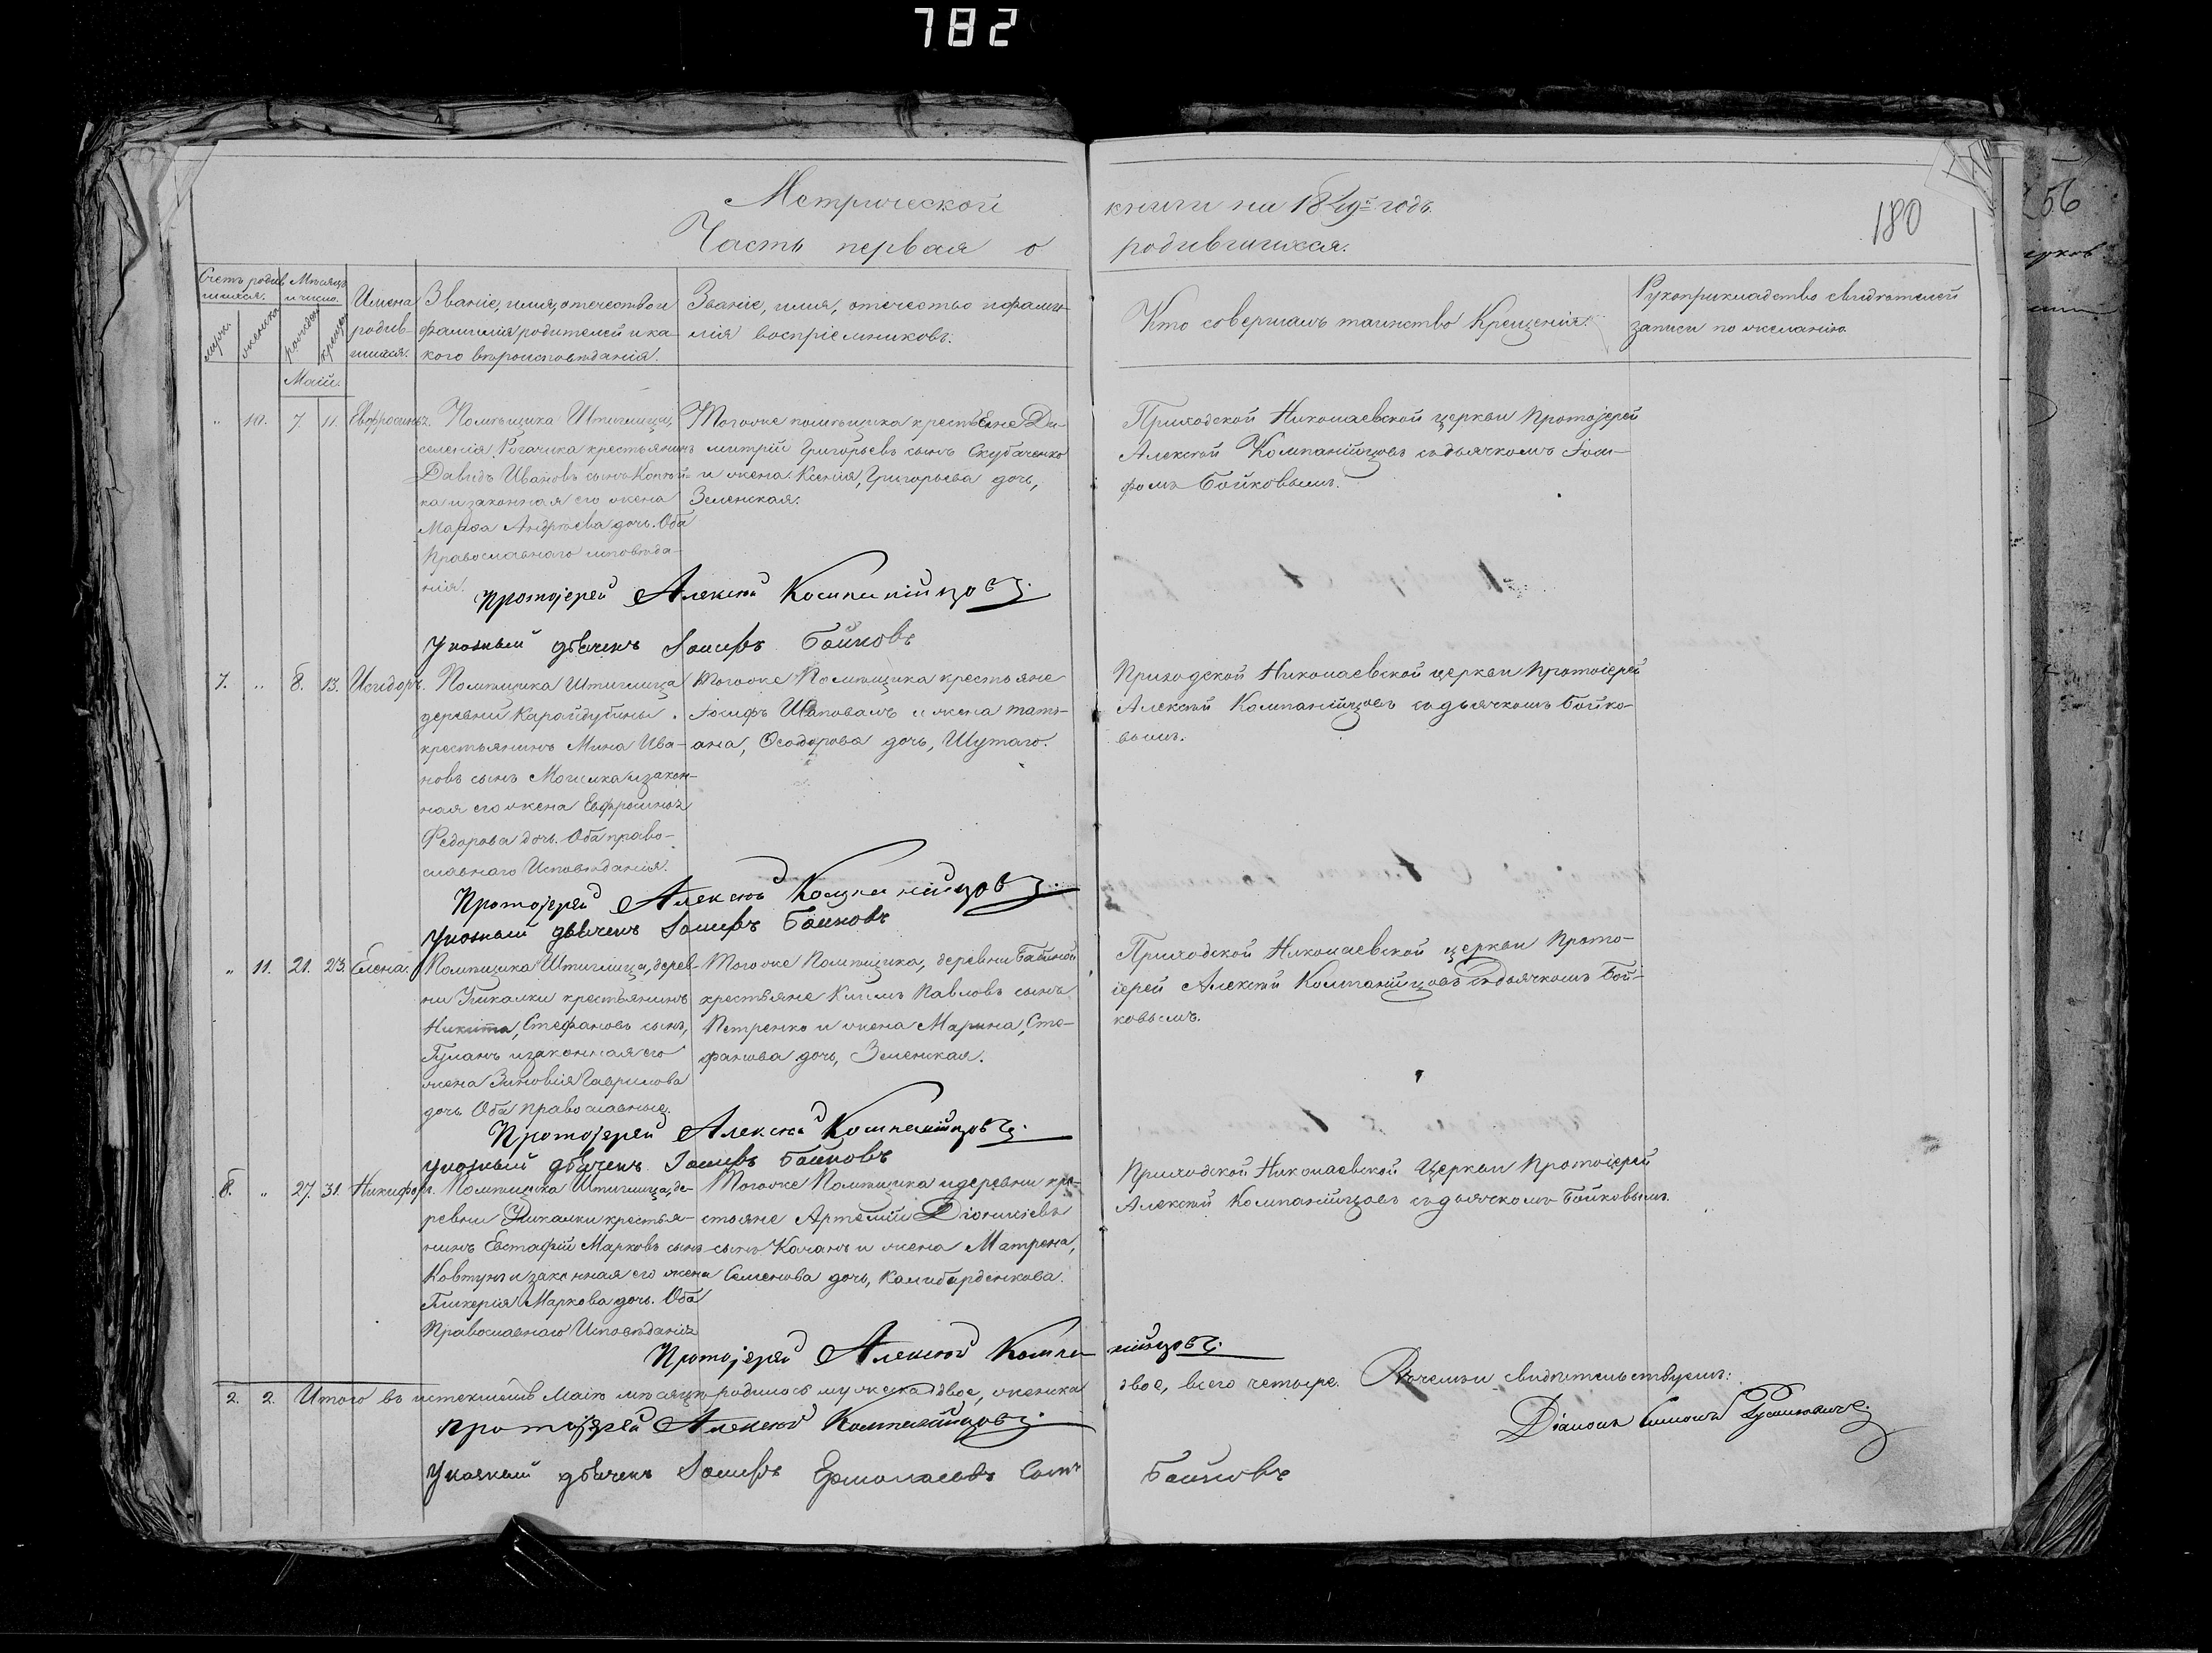 782
Метрической книги на 1849й годъ.
Часть первая о родившихся.
180
256
Счетъ родив
шихся.
Мѣсяцъ
и число.
мужеск.
женска
рожден
крещен
Имена
родив-
шихся.
Званіе, имя, отечество и
фамилія родителей и ка-
кого вѣроисповѣданія.
Званіе, имя, отечество и фами-
лія воспріемниковъ.
Кто совершалъ таинство Крещенія.
Рукоприкладство свидѣтелей
записи по желанію.
Маій.
" 10. 7 11. Евфросинія.
Помѣщика Штиглица,
селенія Рогачика крестьянинъ
Давидъ Ивановъ сынъ
ка и законная его жена
Марѳа Андрѣева дочь. Оба
Православнаго исповѣда-
нія.
Тогоже помѣщика крестьяне Ди-
митрій Григорьевъ сынъ Скубаченко
и жена Ксенія, Григорьева дочь,
Зеленская.
Приходской Николаевской церкви Протоіерей
Алексѣй Компанійцовъ съ дьячкомъ Іоси-
фомъ Бойковымъ.
Протоіерей Алексѣй Компанійцовъ.
Указный дьячекъ Іосифъ Бойковъ
7. " 8. 13. Исидоръ.
Помѣщика Штиглица
деревни Карайдубины
крестьянинъ Мина Ива-
новъ сынъ Могилка и закон-
ная его жена Евфросинія
Федорова дочь. Оба право-
славнаго Исповѣданія.
Тогоже Помѣщика крестьяне
Іосифъ Шаповалъ и жена Тать-
яна, Ѳеодорова дочь, Шутаго.
Приходской Николаевской церкви Протоіерей
Алексѣй Компанійцовъ съ дьячкомъ Бойко-
вымъ.
Протоіерей Алексѣй Компанійцовъ.
Указный дьячекъ Іосифъ Бойковъ
" 11. 21. 23. Елена.
Помѣщика Штиглица, дерев-
ни Ушкалки крестьянинъ
Никита, Стефановъ сынъ,
Гуланъ и законная его
жена Зиновія Гаврилова
дочь. Оба православные.
Тогоже Помѣщика, деревни Бабиной
крестьяне Климъ Павловъ сынъ
Петренко и жена Марина, Сте-
фанова дочь, Зеленская.
Приходской Николаевской церкви Прото-
іерей Алексѣй Компанійцовъ съ дьячкомъ Бой-
ковымъ.
Протоіерей Алексѣй Компанійцовъ.
Указный дьячекъ Іосифъ Бойковъ
8. " 27. 31. Никифоръ.
Помѣщика Штиглица, де-
ревни Ушкалки крестья-
нинъ Евстафій Марковъ сынъ
Ковтунъ и законная его жена
Гликерія Маркова дочь. Оба
Православнаго Исповѣданія
Тогоже Помѣщика и деревни кре-
стьяне Артемій Діонисіевъ
сынъ Качанъ и жена Матрена,
Семенова дочь, Калибарденкова.
Приходской Николаевской Церкви Протоіерей
Алексѣй Компанійцовъ съ дьячкомъ Бойковымъ.
Протоіерей Алексѣй Компанійцовъ.
2. 2. Итого въ истекшемъ Маіѣ мѣсяцѣ родилось мужеска двое, женска двое, всего четыре. В чемъ и свидѣтельствуемъ:
Протоіерей Алексѣй Компанійцовъ.
Діаконъ Симонъ
Указный дьячекъ Іосифъ Ермолаевъ Сынъ Бойковъ